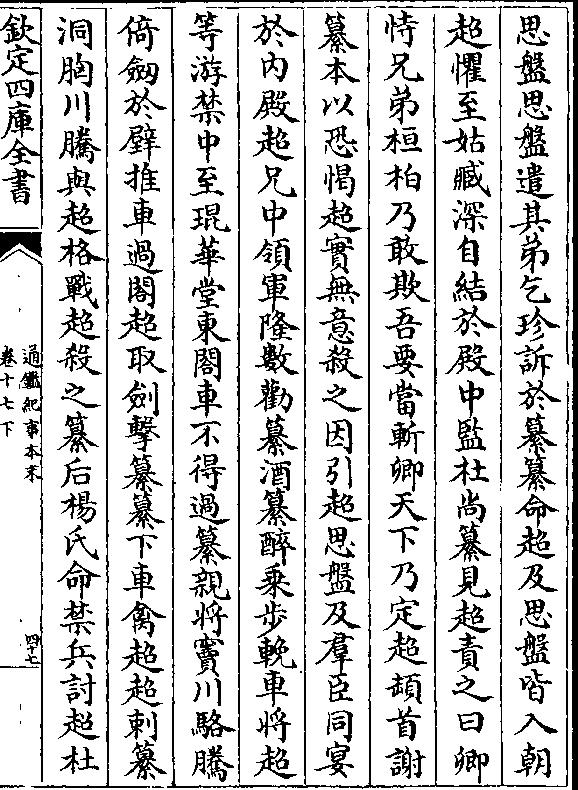 思盤思盤遣其弟乞珍訴於纂纂命超及思盤皆入朝
超懼至姑臧深自結於殿中監杜尚纂見超責之曰卿
恃兄弟桓柏乃敢欺吾要當斬卿天下乃定超頓首謝
纂本以恐愒超實無意殺之因引超思盤及羣臣同宴
於内殿超兄中領軍隆數勸纂酒纂醉乘步輓車將超
等游禁中至琨華堂東閤車不得過纂親將竇川駱騰
倚劒於壁推車過閤超取劍擊纂纂下車禽超超刺纂
洞胸川騰與超格戰超殺之纂后楊氏命禁兵討超杜
欽定四庫全書
通鑑紀事本末
卷十七下
四十七